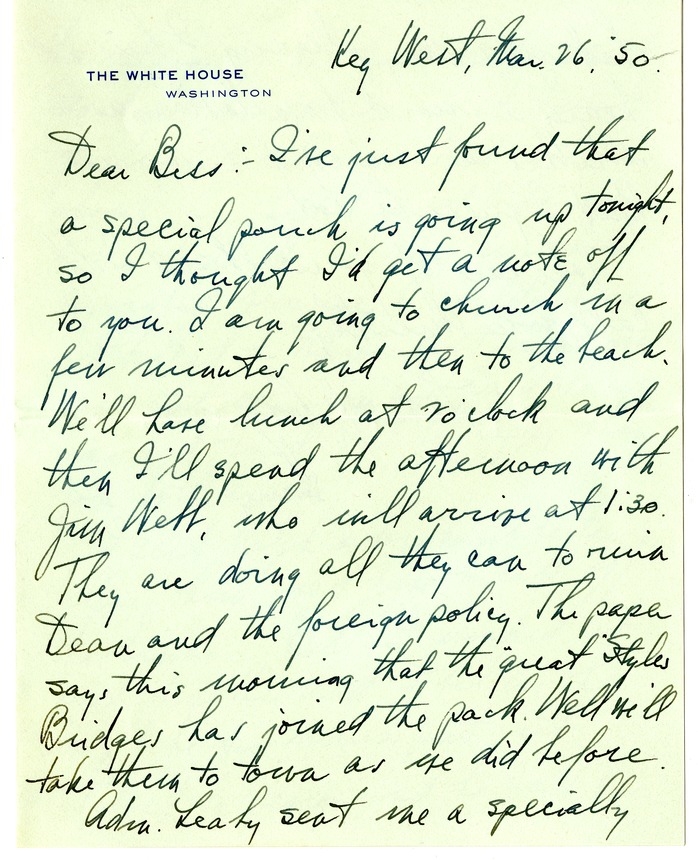 Key West, Mar. 26, '50.
THE WHITE HOUSE
WASHINGTON
Dear Bess:- I've just found that
a special pouch is going up tonight,
so I thought I'd get a note off
to you. I am going to church in a
few minutes and then to the beach.
We'll have lunch at o'clock and
then I'll spend the afternoon with
Jim Webb, who will arrive at 1:30.
They are doing all they can to ruin
Dean and the foreign policy. The paper
says this morning that the "great" Styles
Bridges has joined the pack. Well will
take them to town as we did before.
Adm. Leahy sent me a specially